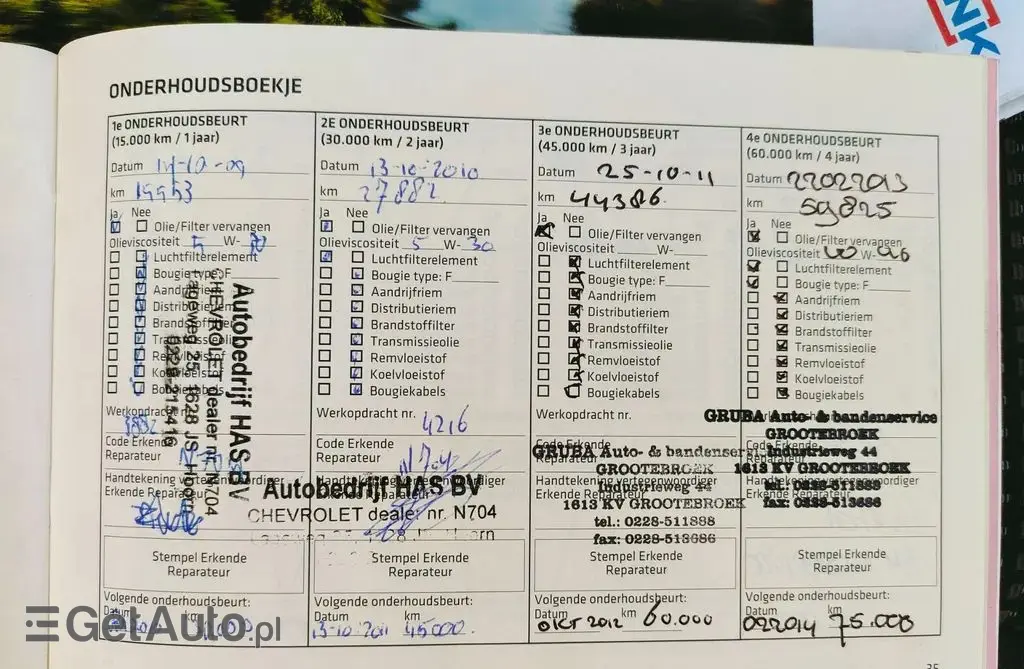 NK
ONDERHOUDSBOEKJE
1e ONDERHOUDSBEURT
(15.000 km / 1 jaar)
Datum 14-10-09
km 19953
Ja Nee
Olie/Filter vervangen
Olieviscositeit 5 W-
Luchtfilterelement
Bougie type: F
Aandrijfriem
Distributieriem
Brandstoffilter
Transmissieolie
Remvloeistof
Koelvloeistof
Bougiekabels
Werkopdracht nr.
Code Erkende
Reparateur
Handtekening vertegenwoordiger
Erkende Reparateur
Autobedrijf HAS BV
CHEVROLET dealer nr. N704
Lageweg 25, 1628 JS Hoorn
0229-215416
Stempel Erkende
Reparateur
Volgende onderhoudsbeurt:
Datum km
2E ONDERHOUDSBEURT
(30.000 km / 2 jaar)
Datum 13-10-2010
km 27882
Ja Nee
Olie/Filter vervangen
Olieviscositeit 5 W-30
Luchtfilterelement
Bougie type: F
Aandrijfriem
Distributieriem
Brandstoffilter
Transmissieolie
Remvloeistof
Koelvloeistof
Bougiekabels
Werkopdracht nr.
4216
Code Erkende
Reparateur
Autobedrijf HAS BV
CHEVROLET dealer nr. N704
Stempel Erkende
Reparateur
Volgende onderhoudsbeurt:
Datum km
13-10-2011 45000
3e ONDERHOUDSBEURT
(45.000 km / 3 jaar)
Datum 25-10-11
km 44386
Ja Nee
Olie/Filter vervangen
Olieviscositeit W-
Luchtfilterelement
Bougie type: F
Aandrijfriem
Distributieriem
Brandstoffilter
Transmissieolie
Remvloeistof
Koelvloeistof
Bougiekabels
Werkopdracht nr.
Code Erkende
Reparateur
GRUBA Auto- & bandenservice
GROOTEBROEK
Industrieweg 44
1613 KV GROOTEBROEK
tel.: 0228-511888
fax: 0228-513686
Stempel Erkende
Reparateur
Volgende onderhoudsbeurt:
Datum km
OKT 2012 60.000
4e ONDERHOUDSBEURT
(60.000 km / 4 jaar)
Datum 22022013
km 59825
Ja Nee
Olie/Filter vervangen
Olieviscositeit W-
Luchtfilterelement
Bougie type: F
Aandrijfriem
Distributieriem
Brandstoffilter
Transmissieolie
Remvloeistof
Koelvloeistof
Bougiekabels
GRUBA Auto- & bandenservice
GROOTEBROEK
Industrieweg 44
1613 KV GROOTEBROEK
tel.: 0228-511888
fax: 0228-513686
Stempel Erkende
Reparateur
Volgende onderhoudsbeurt:
Datum km
022014 75.000
35
GetAuto.pl